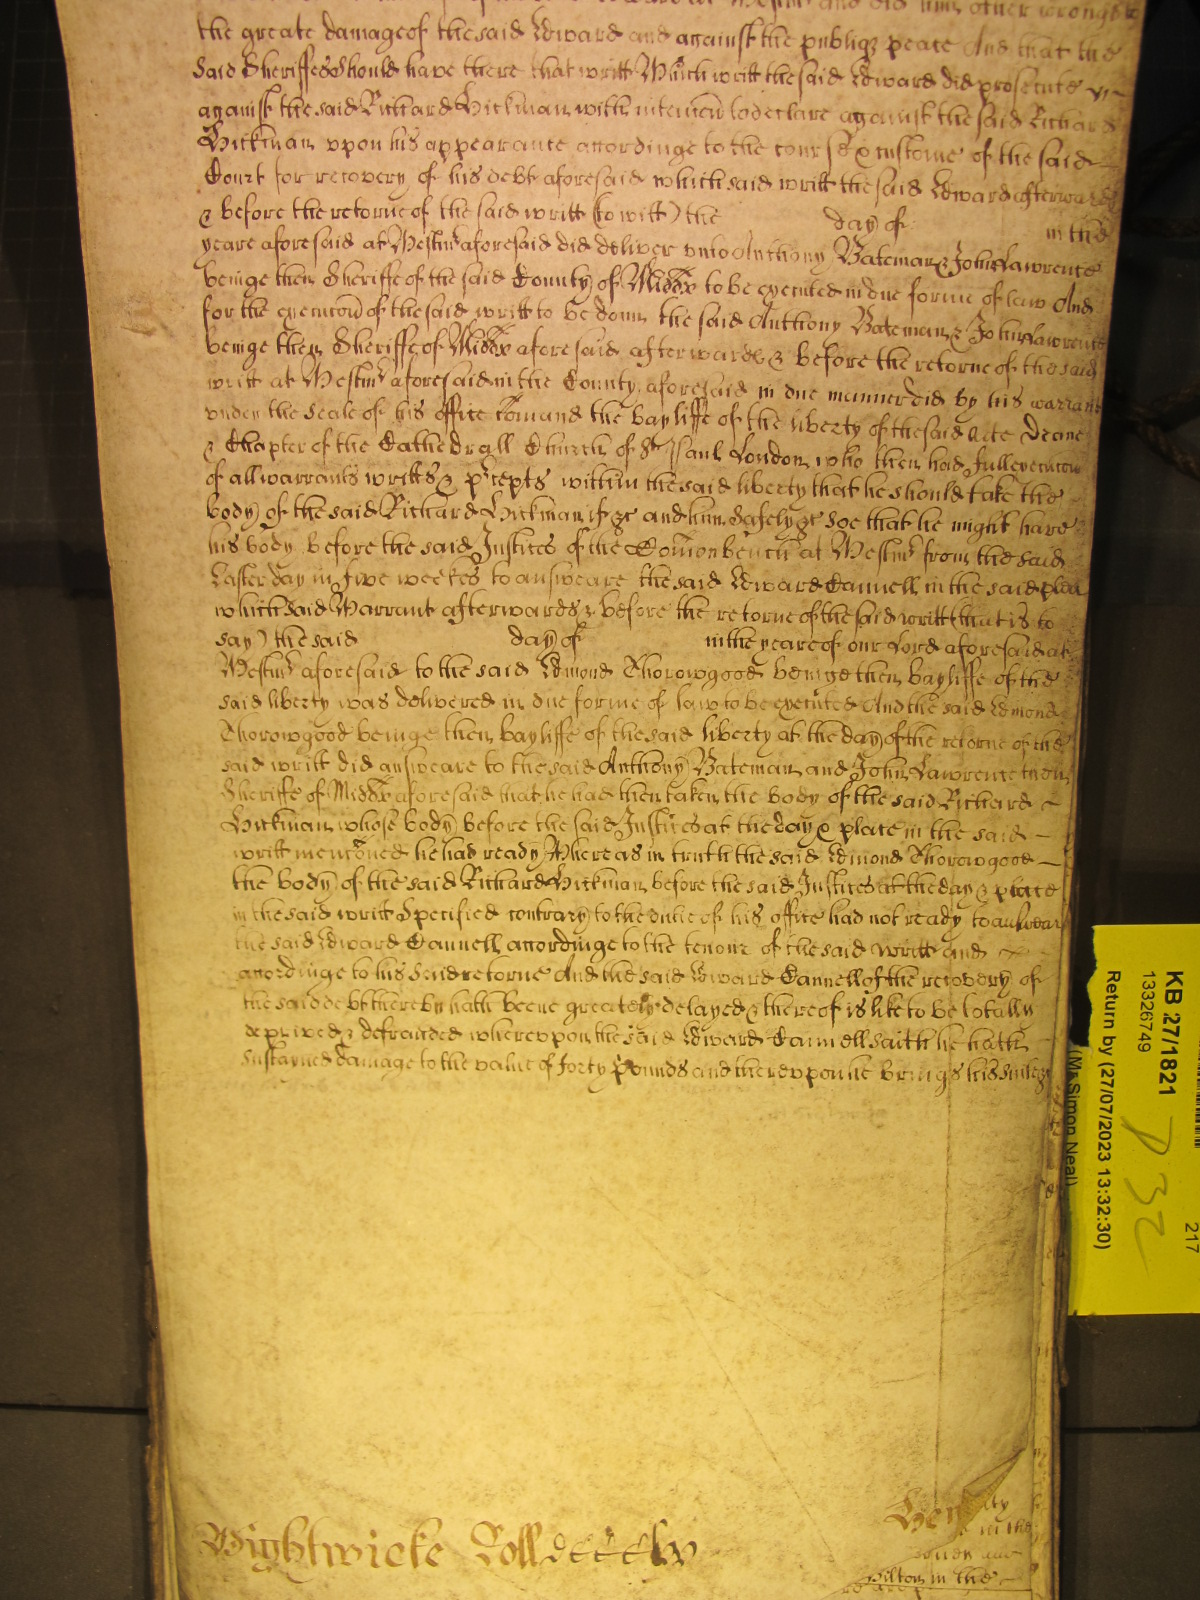 the greate damage of the said Edward and against the publiq peace And that the
said Sheriffes should have there that writt Which writt the said Edward did prosecute
against the said Richard Hickman with intencon to declare against the said Richard
Hickman vpon his appearance accordinge to the course & custome of the said
Court for recovery of his debt aforesaid which said writt the said Edward afterwards
& before the retorne of the said writt (to witt) the day of in the
yeare aforesaid at Westmr aforesaid did deliver vnto Anthony Bateman & John Lawrence
beinge then Sheriffe of the said County of Middx to be executed in due forme of law And
for the execucon of the said writt to be donn the said Anthony Bateman & John Lawrence
beinge then Sheriffe of Middx aforesaid afterwards & before the retorne of the said
writt at Westmr aforesaid in the County aforesaid in due manner did by his warrant
vnder the Seale of his office comand the bayliffe of the liberty of the said late Deane
& Chapter of the Cathedrall Church of St Paul London who then had full execucon
of all warrants writts & precepts within the said liberty that he should take the
body of the said Richard Hickman if &c and him safely &c Soe that he might have
his body before the said Justices of the Comon bench at Westmr from the said
Easter day in five weekes to answeare the said Edward Cannell in the said plea
which said Warrant afterwards & before the retorne of the said writt (that is to
say) the said day of in the yeare of our Lord aforesaid at
Westmr aforesaid to the said Edmond Thorowgood beinge then bayliffe of the
said liberty was delivered in due forme of law to be executed And the said Edmond
Thorowgood beinge then bayliffe of the said liberty at the day of the retorne of the
said writt did answeare to the said Anthony Bateman and John Lawrence then
Sheriffe of Middx aforesaid that he had then taken the body of the said Richard
Hickman whose body before the said Justices at the day & place in the said
writt menconed he had ready Whereas in truth the said Edmond Thorowgood
the body of the said Richard Hickman before the said Justices at the day & place
in the said writt specified contrary to the dutie of his office had not ready to answeare
the said Edward Cannell accordinge to the tenour of the said writt and
accordinge to his said retorne And the said Edward Cannell of the recovery of
the said debt thereby hath beene greately delayed & thereof is like to be totally
deprived & defrauded wherevpon the said Edward Cannell saith he hath
sustayned damage to the value of forty pounds and therevpon he brings his suite &c
Wightwicke Roll dccclv
KB 27/1821
13326749
Return by (27/07/2023 13:32:30)
(Mr Simon Neal)
217
P 32